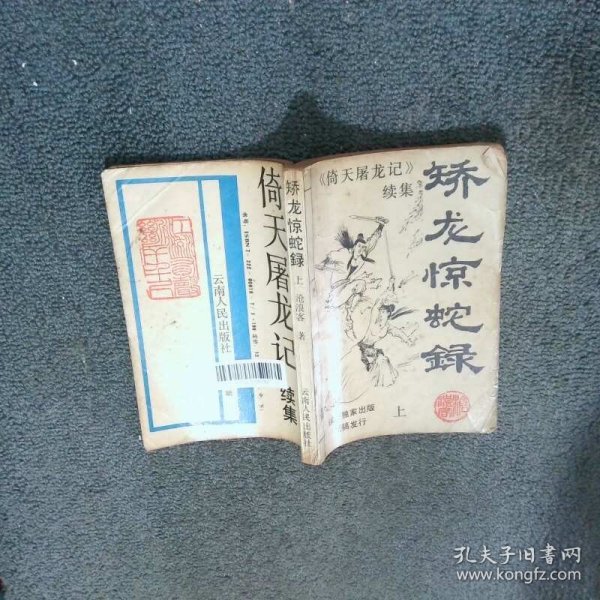 《倚天屠龙记》
续集
矫龙惊蛇録
独家出版
发行
上
矫龙惊蛇録
上
沧浪客 著
云南人民出版社
倚天屠龙记
续集
云南人民出版社
孔夫子旧书网
www.kongfz.com